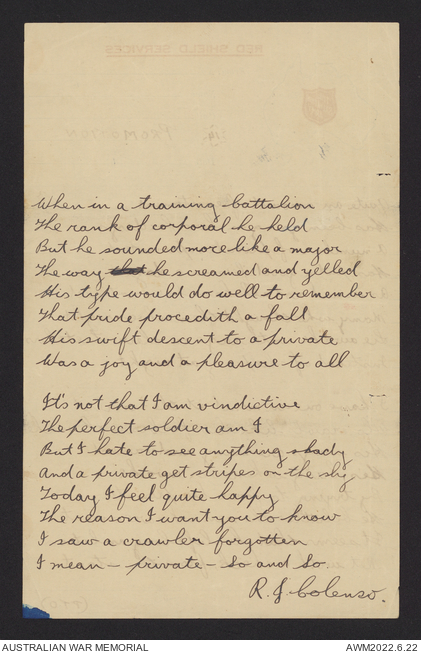 RED SHIELD SERVICES
PROMOTION
When in a training battalion
The rank of corporal he held
But he sounded more like a major
The way that he screamed and yelled
His type would do well to remember
That pride procedith a fall
His swift descent to a private
Was a joy and a pleasure to all
It's not that I am vindictive
The perfect soldier am I
But I hate to see anything shady
And a private get stripes on the sly
Today I feel quite happy
The reason I want you to know
I saw a crawler forgotten
I mean – private – So and So.
R. J Colenso.
AUSTRALIAN WAR MEMORIAL
AWM2022.6.22